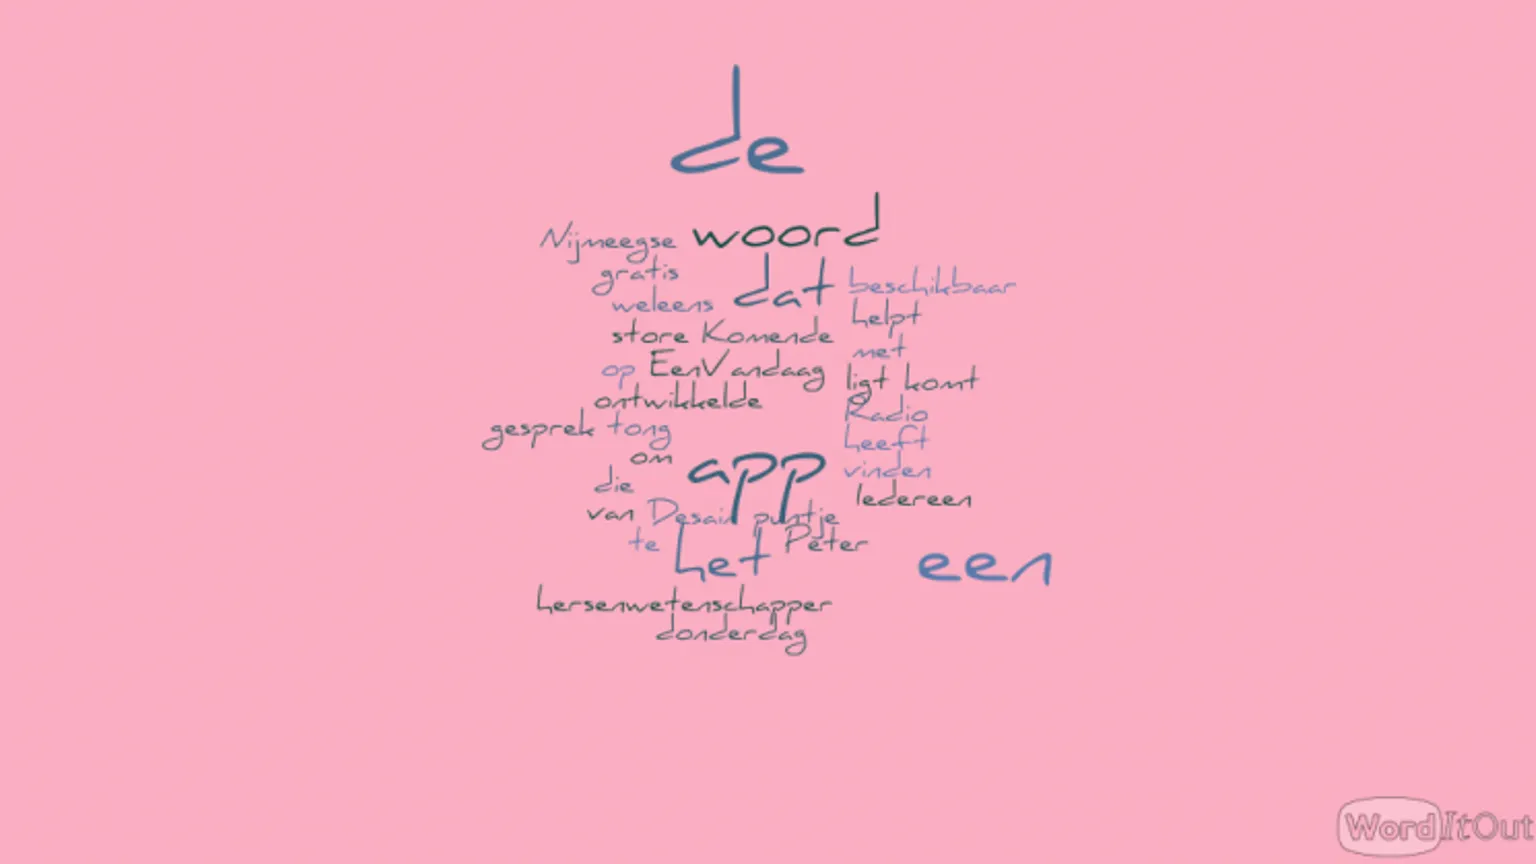 de
Nijmeegse woord
gratis
weleens dat beschikbaar
helpt
store Komende
met
op EenVandaag
ligt komt
ontwikkelde
Radio
gesprek tong
heeft
om app vinden
die
Iedereen
van Desain puntje
te het Peter
een
hersenwetenschapper
donderdag
WordItOut